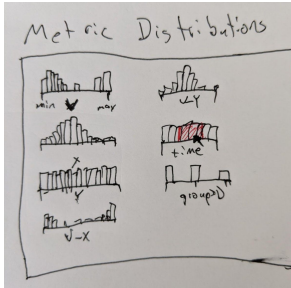 Metric Distributions
min max
X
Y
√-X
∠Y
time
groupID